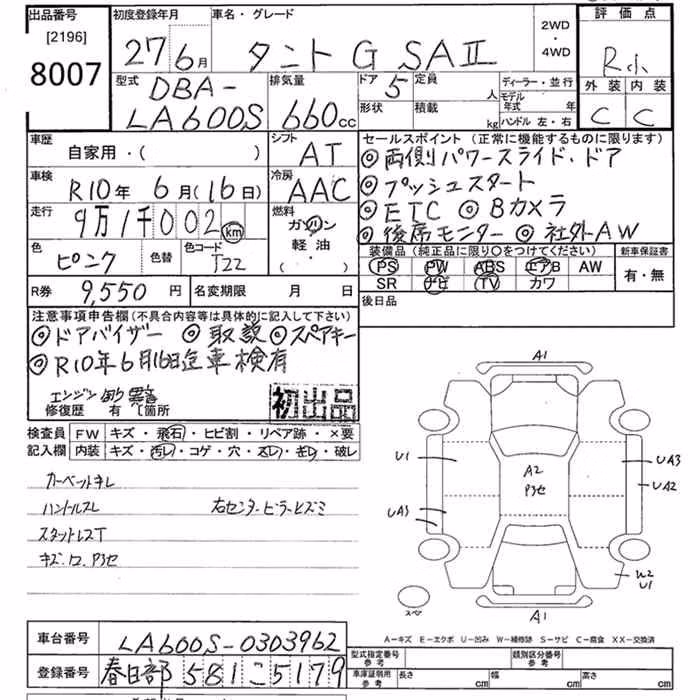 出品番号
[2196]
8007
初度登録年月
27年6月
車名・グレード
タント G SAⅡ
2WD
・
4WD
評価点
R小
外装 内装
C C
型式
DBA-
LA600S
排気量
660cc
ドア 5
定員 人
形状
積載 kg
ディーラー・並行
モデル年式 年
ハンドル 左・右
車歴
自家用・( )
シフト
AT
車検
R10年 6月(16日)
冷房
AAC
走行
9万1千002km
燃料
ガソリン
軽油
・( )
色
ピンク
色替
色コード
T22
セールスポイント(正常に機能するものに限ります)
◎両側パワースライド・ドア
◎プッシュスタート
◎ETC ◎Bカメラ
◎後席モニター ◎社外AW
装備品(純正品に限り○をつけてください)
PS PW ABS エアB AW
SR ナビ TV カワ
新車保証書
有・無
R券 9,550円
名変期限 月 日
後日品
注意事項申告欄(不具合内容等は具体的に記入して下さい)
◎ドアバイザー ◎取説 ◎スペアキー
◎R10年6月16日迄車検有
エンジン
修復歴 有 箇所
初出品
検査員 FW キズ・飛石・ヒビ割・リペア跡・×要
記入欄 内装 キズ・汚レ・コゲ・穴・スレ・キレ・破レ
カーペットキレ
ハンドルスレ 右センターピラーヒズミ
スタットレスT
キズ.凹.P3セ
A1
U1
A2
P3セ
UA3
UA2
UA3
W2
U1
スペア
A1
A−キズ E−エクボ U−凹み W−補修跡 S−サビ C−腐食 XX−交換済
車台番号 LA600S-0303962
登録番号 春日部 581 こ 5179
型式指定番号
参考
類別区分番号
参考
車庫証明用
参考
長さ cm 幅 cm 高さ cm